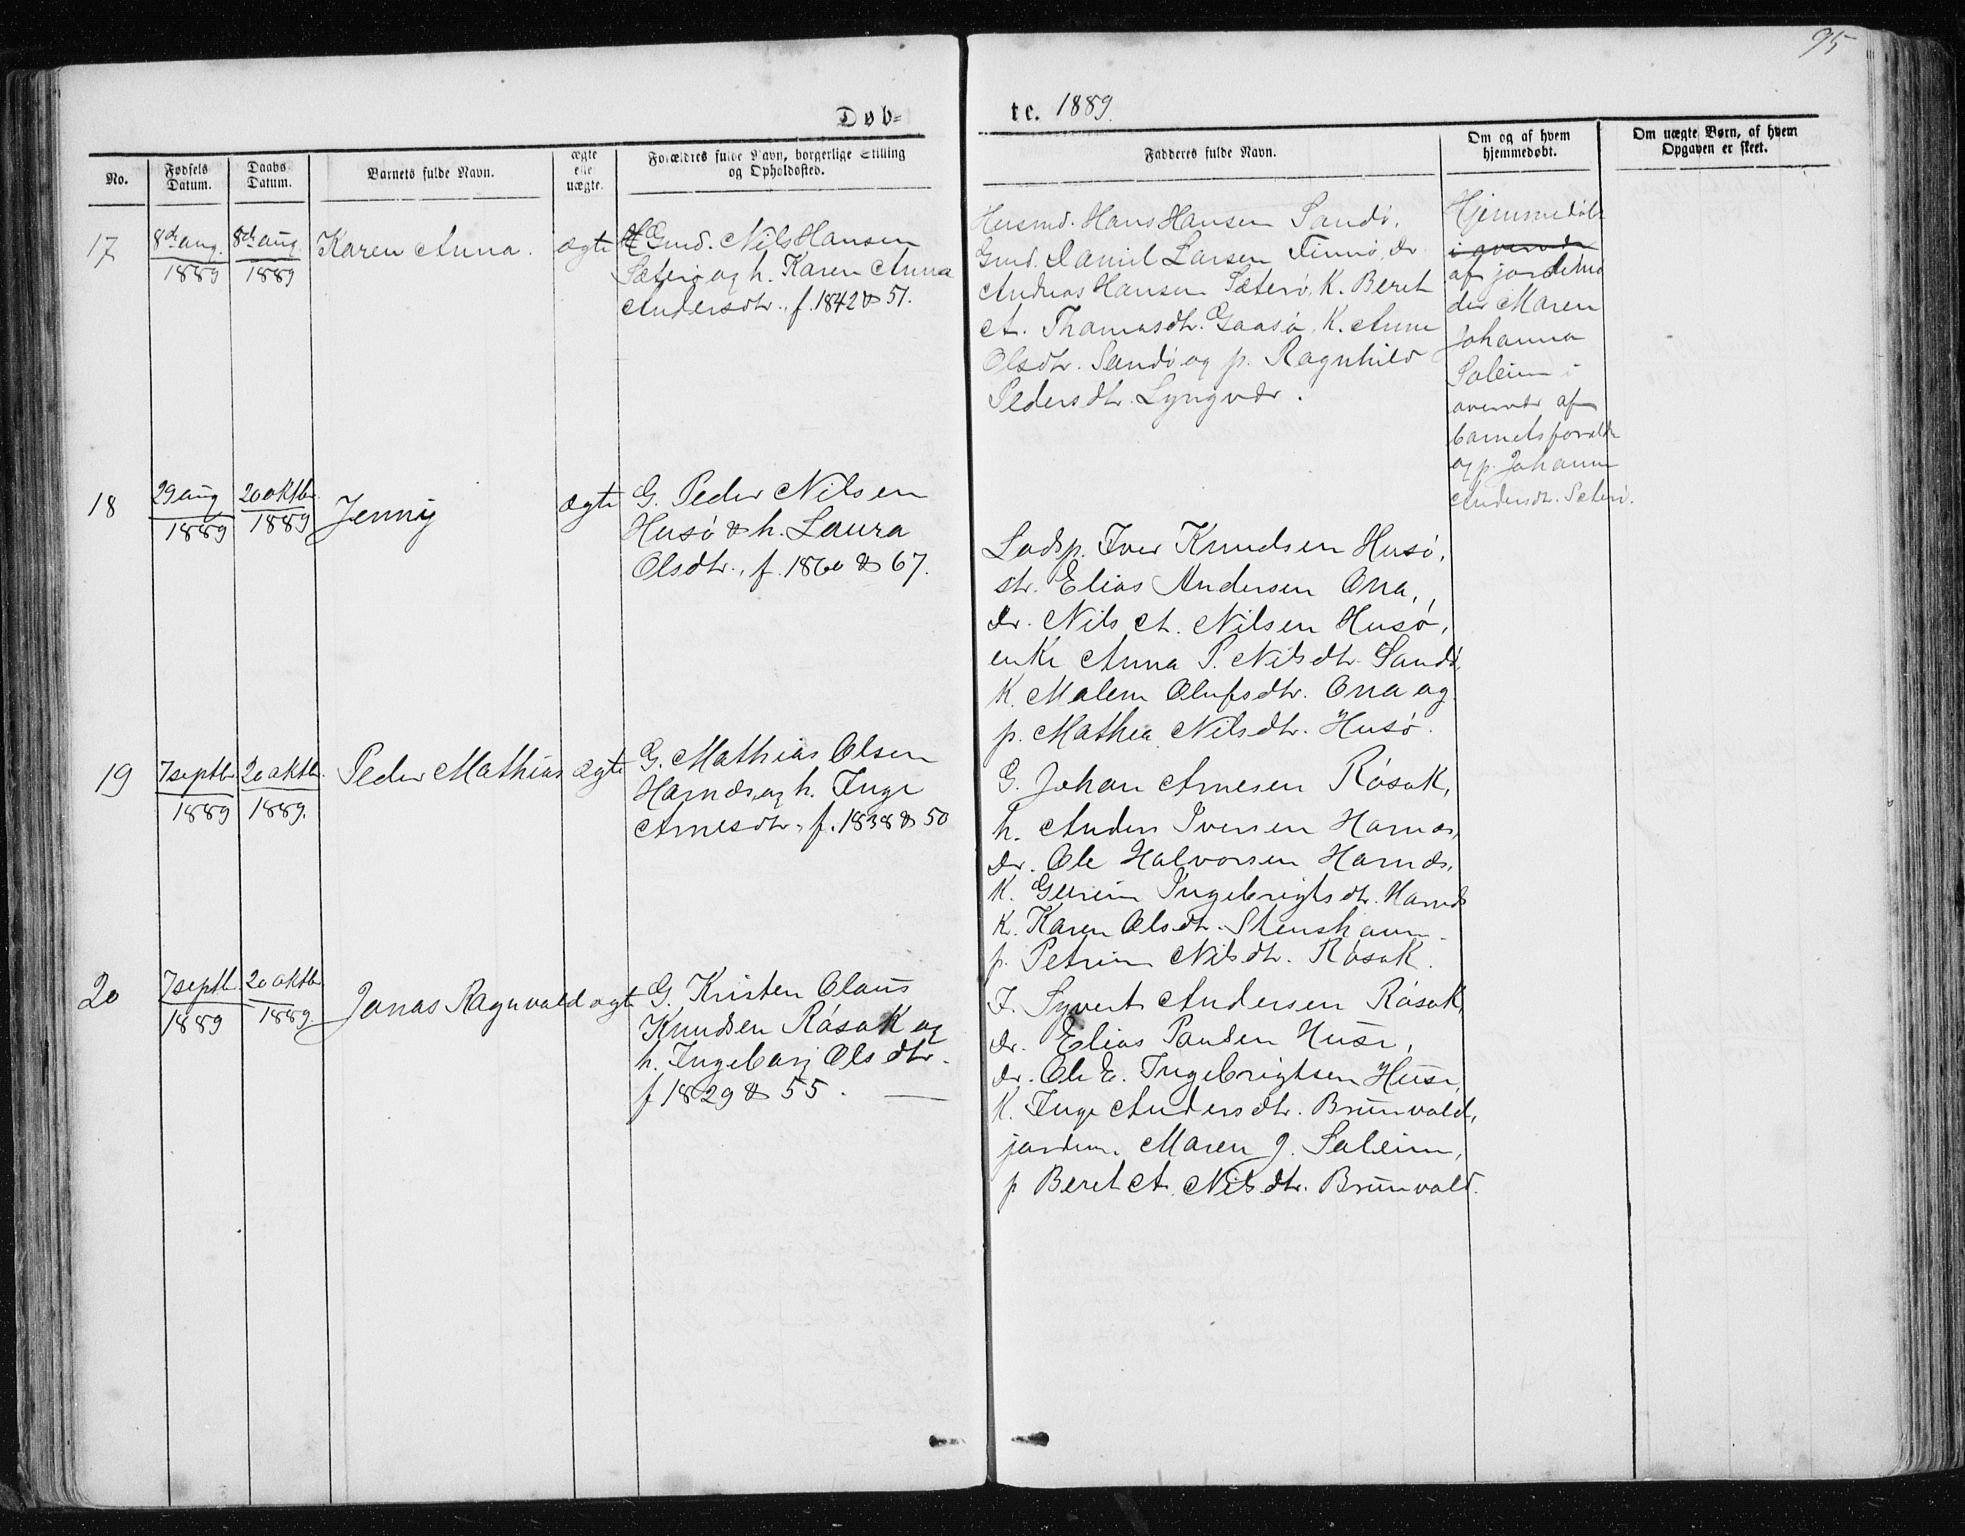 95
Døb=
te. 1889.
No.
Fødsels
Datum.
Daabs
Datum.
Barnets fulde Navn.
ægte
eller
uægte.
Forældres fulde Navn, borgerlige Stilling
og Opholdssted.
Faddernes fulde Navn.
Om og af hvem
hjemmedøbt.
Om uægte Børn, af hvem
Opgaven er skeet.
17
8de aug.
1889
8de aug.
1889
Karen Anna.
ægte
Gmd. Nils Hansen
Sæterø og h. Karen Anna
Andersdtr., f. 1842 & 51.
Husmd. Hans Hansen Sandø,
Gmd. Daniel Larsen Finnø, dr
Andreas Hansen Sæterø, K. Beret
A. Thomasdtr. Gaasø, K. Anne
Olsdtr. Sandø og p. Ragnhild
Pedersdtr. Lyngvær.
Hjemmedøbt
i overvær
af jordemo
der Maren
Johanna
Soleim i
overvær af
barnets foreldre
og p. Johanne
Andersdtr. Sæterø.
18
29 aug
1889
20 oktbr.
1889
Jenny
ægte
G. Peder Nilsen
Husø & h. Laura
Olsdtr., f. 1860 & 67.
Lodsp. Iver Knudsen Husø,
str. Elias Andersen Ona,
dr. Nils A. Nilsen Husø,
enke Anna P. Nilsdtr. Sandø,
K. Malene Olufsdtr. Ona og
p. Mathea Nilsdtr. Husø.
19
7 septbr
1889
20 oktbr.
1889.
Peder Mathias
ægte
G. Mathias Olsen
Harnæs og h. Inge
Arnesdtr., f. 1838 & 50
G. Johan Arnesen Røsok,
h. Anders Iversen Harnæs,
dr. Ole Halvorsen Harnæs,
K. Guriene Ingebrigtsdtr. Harnæs
K. Karen Olsdtr. Stenshavn
p. Petrine Nilsdtr. Røsok.
20
7 septbr
1889
20 oktbr
1889
Jonas Ragnvald
ægte
G. Kristen Olaus
Knudsen Røsok og
h. Ingeborg Olsdtr.
f 1829 & 55.
I. Syvert Andersen Røsok,
dr. Elias Paulsen Huse,
dr. Ole E. Ingebrigtsen Huse,
K. Inge Andersdtr. Brunvold,
jordem. Maren J. Soleim,
p Beret A. Nilsdtr. Brunvold.